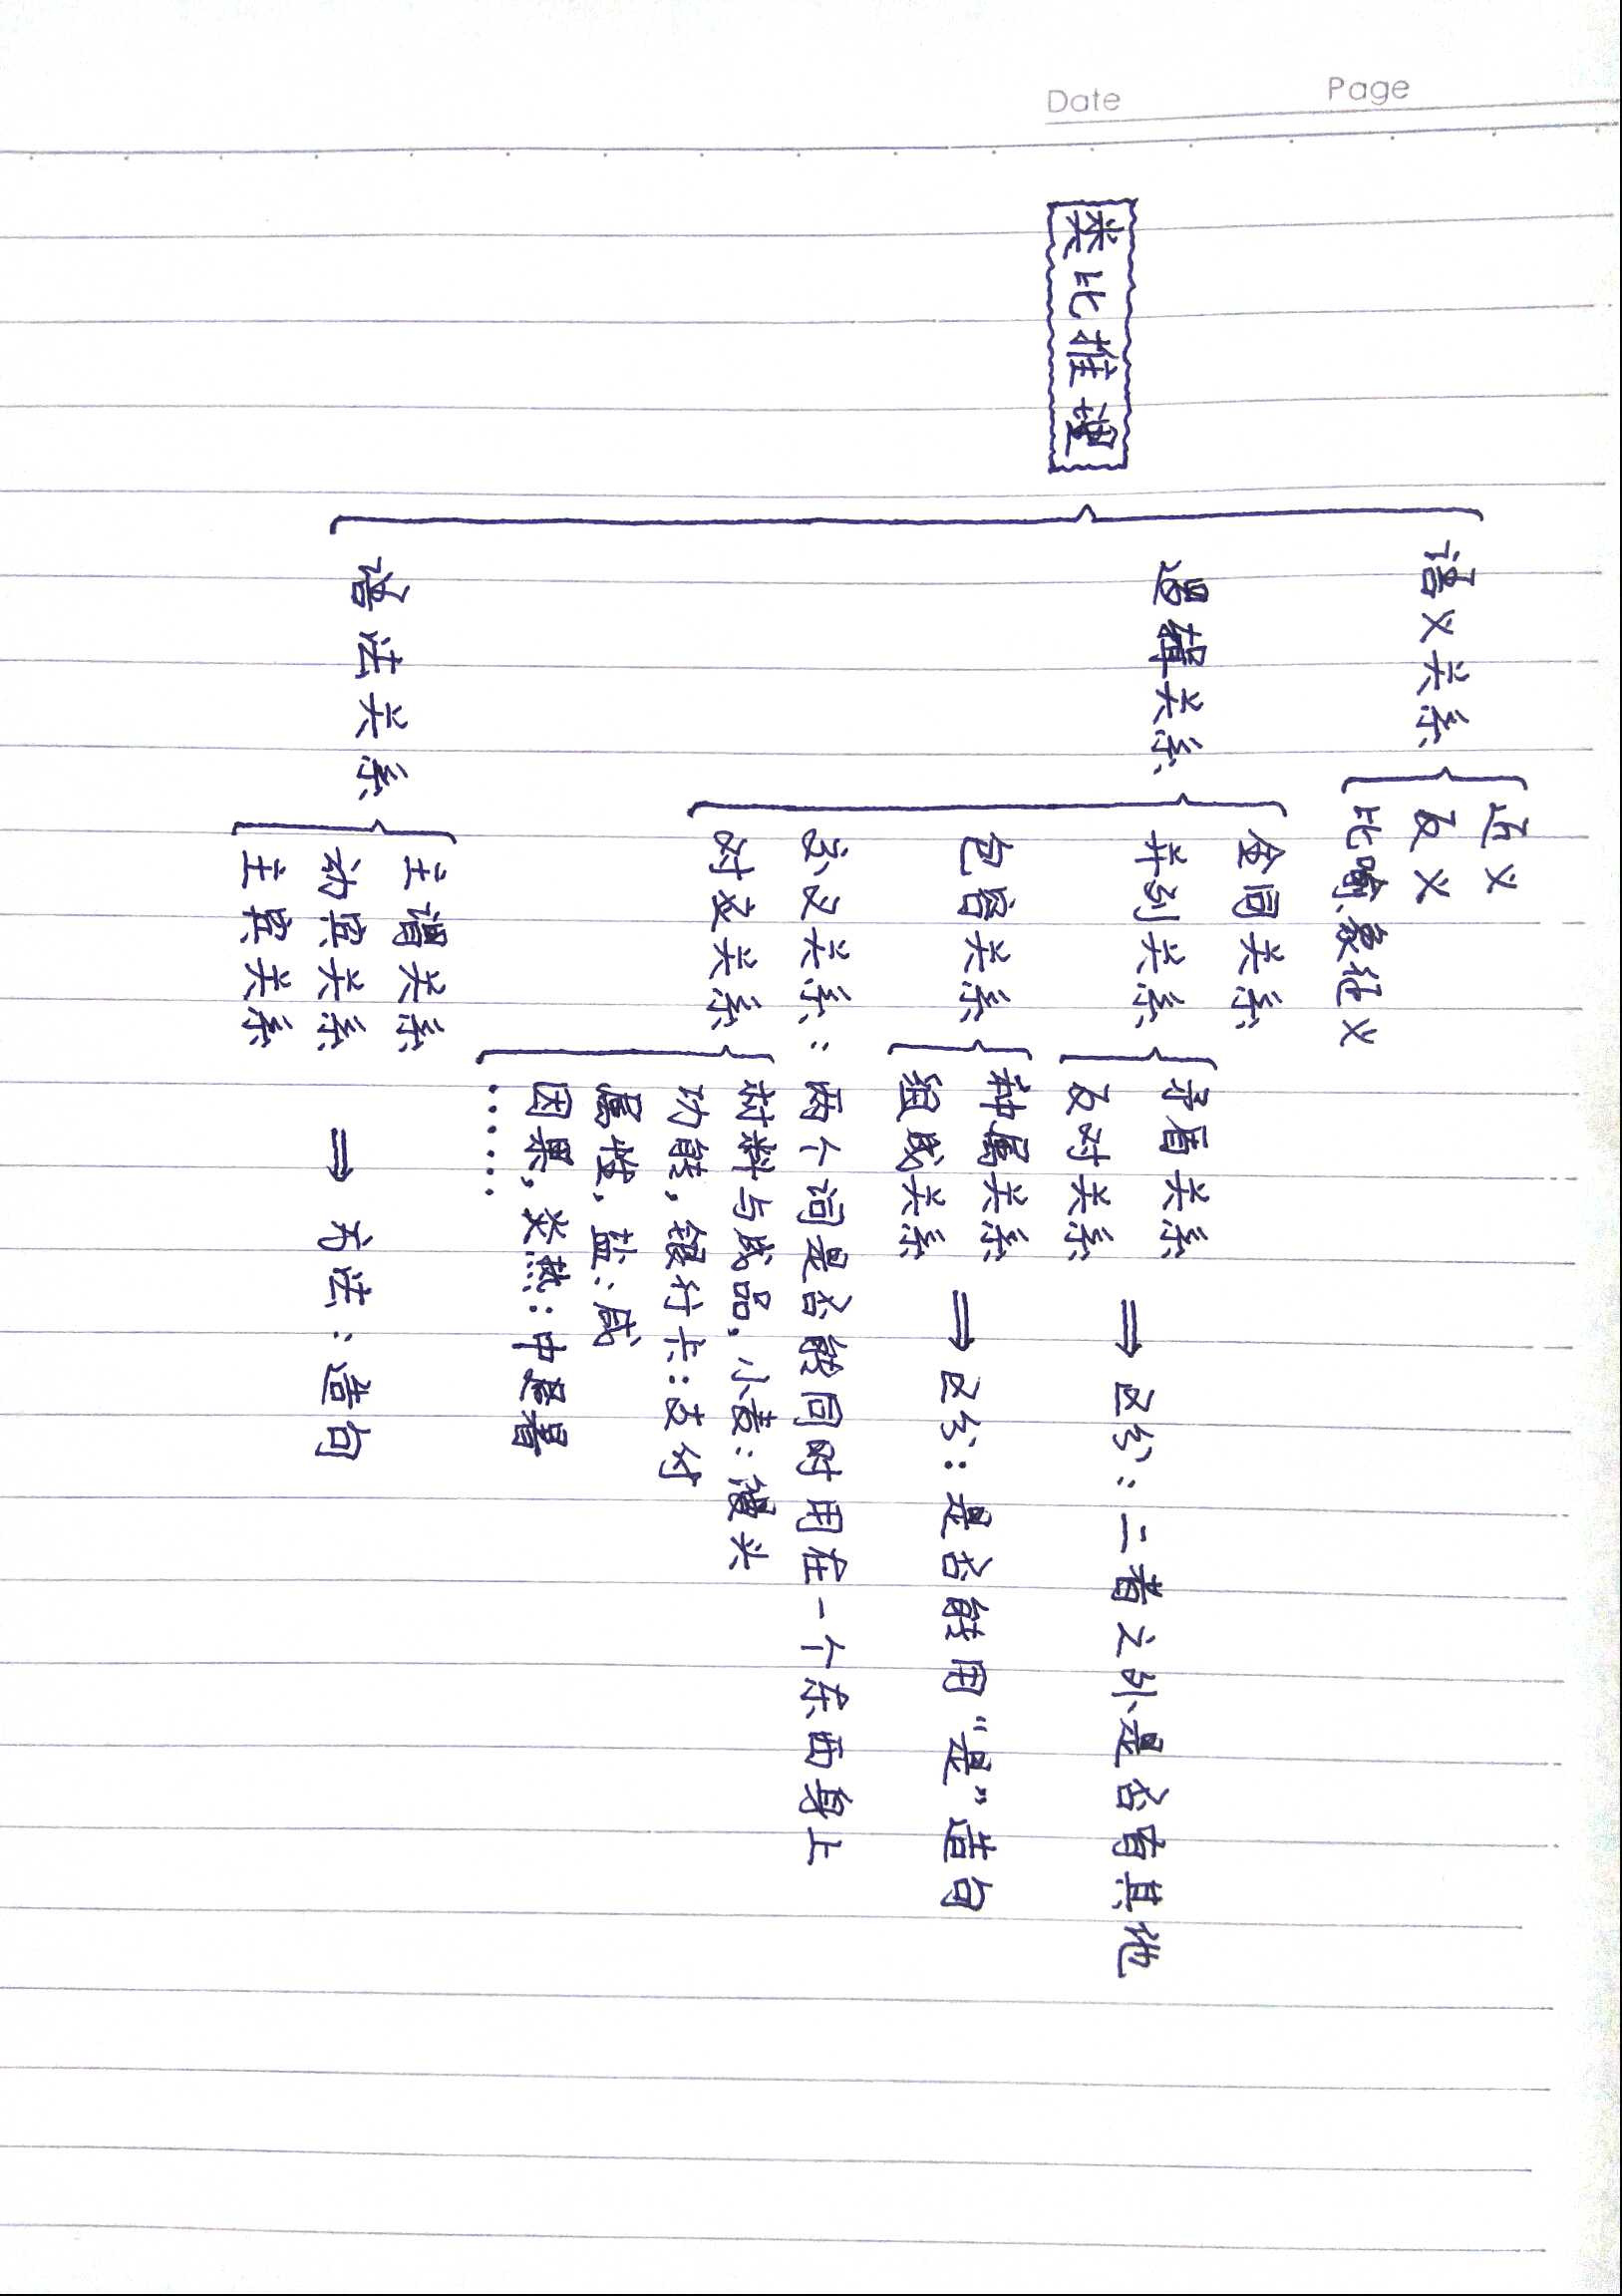 Date Page
类比推理
语义关系
近义
反义
比喻象征义
逻辑关系
全同关系
并列关系
矛盾关系
反对关系
⇒ 区分:二者之外是否有其他
包容关系
种属关系
组成关系
⇒ 区分:是否能用“是”造句
交叉关系:两个词是否能同时用在一个东西身上
对应关系
材料与成品,小麦:馒头
功能,银行卡:支付
属性,盐:咸
因果,炎热:中暑
……
语法关系
主谓关系
动宾关系
主宾关系
⇒ 方法:造句